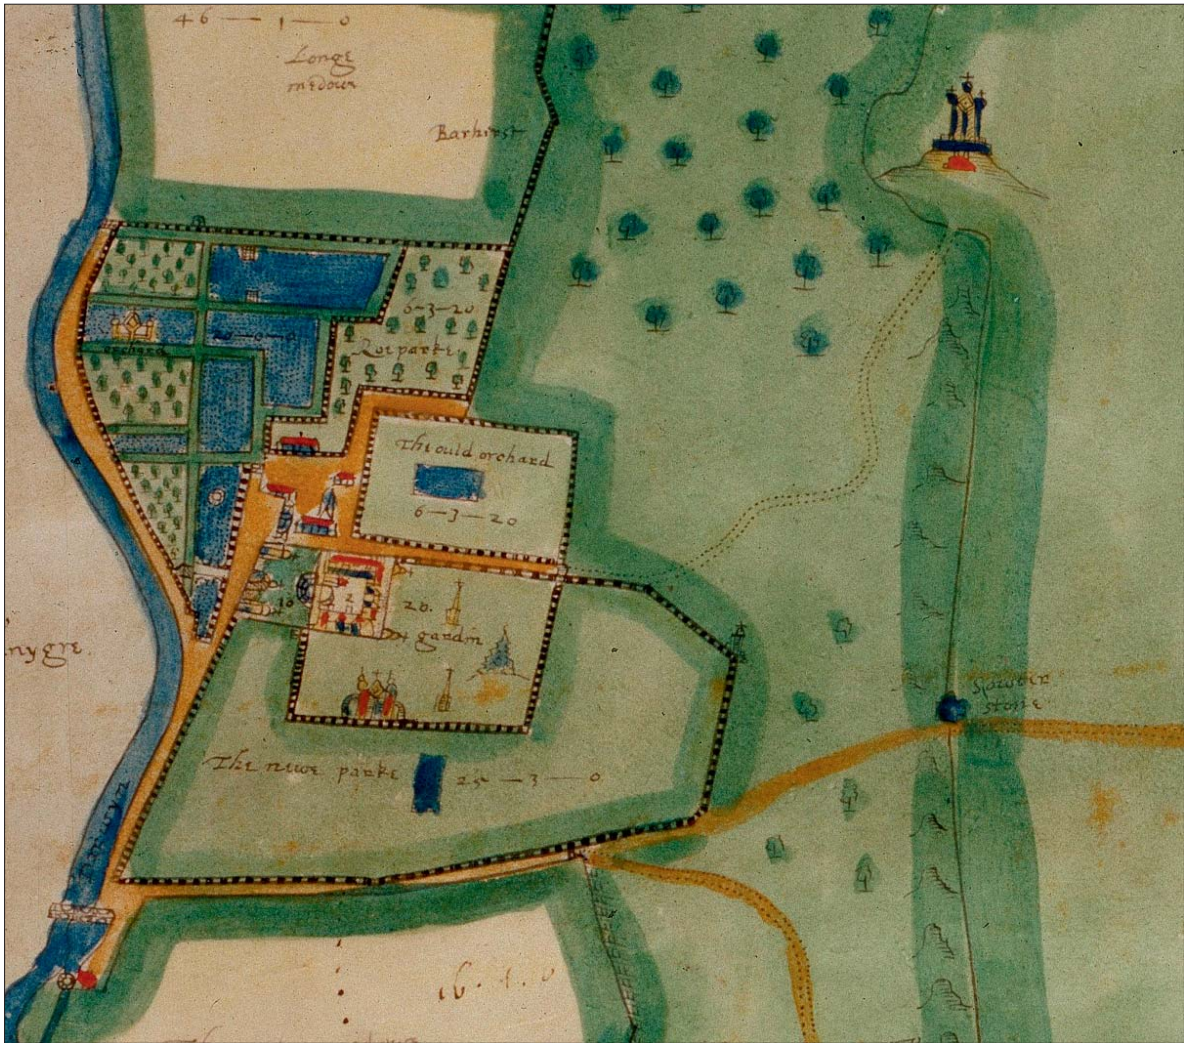 46 — 1 — 0
Longe
medow
Barhurst
6 — 3 — 20
Roeparke
orchard
The ould orchard
6 — 3 — 20
10
2
20.
gardin
nygre.
stone
The newe parke
25 — 3 — 0
16 . 1 . 0